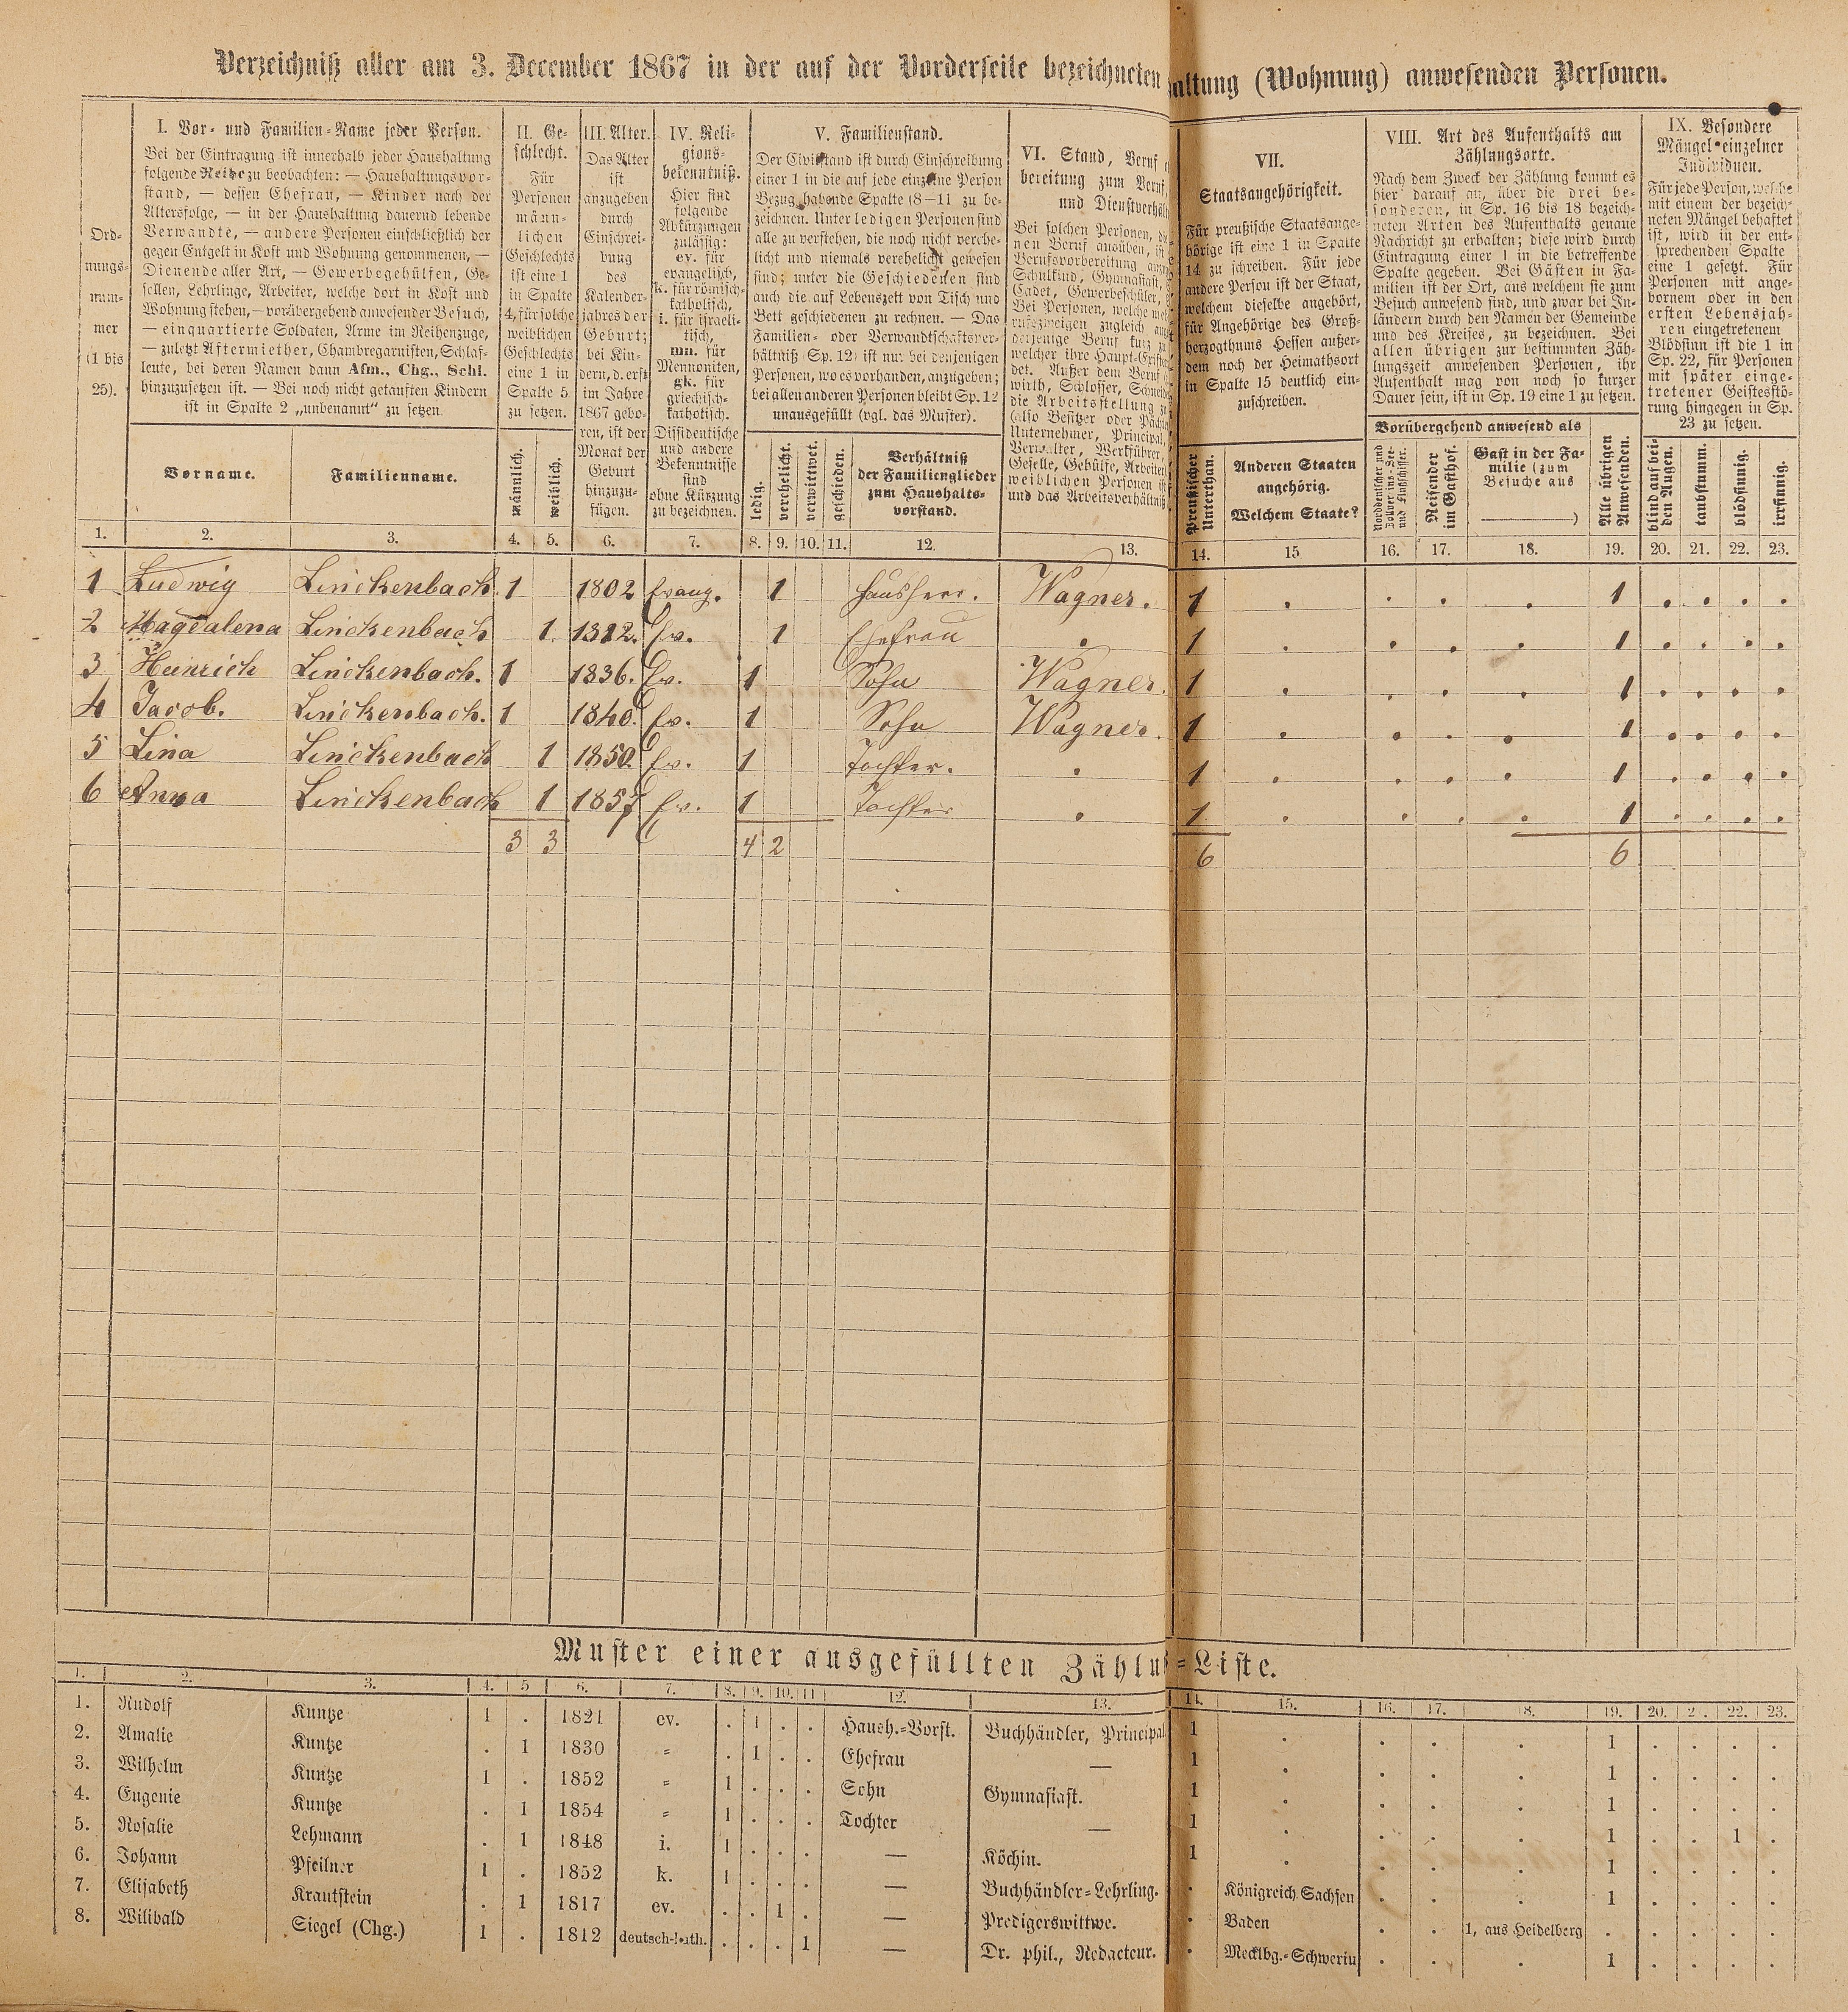 Verzeichniß aller am 3. December 1867 in der auf der Vorderseite bezeichneten altung (Wohnung) anwesenden Personen.
Ord-
nungs-
num-
mer
(1 bis
25).
I. Vor- und Familien-Name jeder Person.
Bei der Eintragung ist innerhalb jeder Haushaltung
folgende Reihe zu beobachten: — Haushaltungsvor-
stand, — dessen Ehefrau, — Kinder nach der
Altersfolge, — in der Haushaltung dauernd lebende
Verwandte, — andere Personen einschließlich der
gegen Entgelt in Kost und Wohnung genommenen, —
Dienende aller Art, — Gewerbegehülfen, Ge-
sellen, Lehrlinge, Arbeiter, welche dort in Kost und
Wohnung stehen, — vorübergehend anwesender Besuch,
— einquartierte Soldaten, Arme im Reihenzuge,
— zuletzt Aftermiether, Chambregarnisten, Schlaf-
leute, bei deren Namen dann Afm., Chg., Schl.
hinzuzusetzen ist. — Bei noch nicht getauften Kindern
ist in Spalte 2 „unbenannt“ zu setzen.
Vorname.
Familienname.
II. Ge-
schlecht.
Für
Personen
männ-
lichen
Geschlechts
ist eine 1
in Spalte
4, für solche
weiblichen
Geschlechts
eine 1 in
Spalte 5
zu setzen.
männlich.
weiblich.
III. Alter.
Das Alter
ist
anzugeben
durch
Einschrei-
bung
des
Kalender-
jahres der
Geburt;
bei Kin-
dern, d. erst
im Jahre
1867 gebo-
ren, ist der
Monat der
Geburt
hinzuzu-
fügen.
IV. Reli-
gions-
bekenntniß.
Hier sind
folgende
Abkürzungen
zulässig:
ev. für
evangelisch,
k. für römisch-
katholisch,
i. für israeli-
tisch,
mn. für
Mennoniten,
gk. für
griechisch-
katholisch.
Dissidentische
und andere
Bekenntnisse
sind
ohne Kürzung
zu bezeichnen.
V. Familienstand.
Der Civilstand ist durch Einschreibung
einer 1 in die auf jede einzelne Person
Bezug habende Spalte (8—11 zu be-
zeichnen. Unter ledigen Personen sind
alle zu verstehen, die noch nicht verehe-
licht und niemals verehelicht gewesen
sind; unter die Geschiedenen sind
auch die auf Lebenszeit von Tisch und
Bett geschiedenen zu rechnen. — Das
Familien- oder Verwandtschaftsver-
hältniß (Sp. 12) ist nur bei denjenigen
Personen, wo es vorhanden, anzugeben;
bei allen anderen Personen bleibt Sp. 12
unausgefüllt (vgl. das Muster).
ledig.
verehelicht.
verwittwet.
geschieden.
Verhältniß
der Familienglieder
zum Haushalts-
vorstand.
VI. Stand, Beruf
bereitung zum Beruf,
und Dienstverhält
Bei solchen Personen, die
nen Beruf ausüben, ist
Berufsvorbereitung
Schulkind, Gymnasiast,
Cadet, Gewerbeschüler,
Bei Personen, welche
rufszweigen zugleich
derjenige Beruf kurz zu
welcher ihre Haupt-Existen
det. Außer dem Beruf
wirth, Schlosser, Schneider
die Arbeitsstellung
(also Besitzer oder Pächter
Unternehmer, Principal,
Verwalter, Werkführer,
Geselle, Gehülfe, Arbeiter
weiblichen Personen ist
und das Arbeitsverhältniß
VII.
Staatsangehörigkeit.
Für preußische Staatsange-
hörige ist eine 1 in Spalte
14 zu schreiben. Für jede
andere Person ist der Staat,
welchem dieselbe angehört,
für Angehörige des Groß-
herzogthums Hessen außer-
dem noch der Heimathsort
in Spalte 15 deutlich ein-
zuschreiben.
Preußischer
Unterthan.
Anderen Staaten
angehörig.
Welchem Staate?
VIII. Art des Aufenthalts am
Zählungsorte.
Nach dem Zweck der Zählung kommt es
hier darauf an, über die drei be-
sonderen, in Sp. 16 bis 18 bezeich-
neten Arten des Aufenthalts genaue
Nachricht zu erhalten; diese wird durch
Eintragung einer 1 in die betreffende
Spalte gegeben. Bei Gästen in Fa-
milien ist der Ort, aus welchem sie zum
Besuch anwesend sind, und zwar bei In-
ländern durch den Namen der Gemeinde
und des Kreises, zu bezeichnen. Bei
allen übrigen zur bestimmten Zäh-
lungszeit anwesenden Personen, ihr
Aufenthalt mag von noch so kurzer
Dauer sein, ist in Sp. 19 eine 1 zu setzen.
Vorübergehend anwesend als
Norddeutscher und
Zollvereins-See-
und Flußschiffer.
Reisender
im Gasthof.
Gast in der Fa-
milie (zum
Besuche aus
———)
Alle übrigen
Anwesenden.
IX. Besondere
Mängel einzelner
Individuen.
Für jede Person, welche
mit einem der bezeich-
neten Mängel behaftet
ist, wird in der ent-
sprechenden Spalte
eine 1 gesetzt. Für
Personen mit ange-
bornem oder in den
ersten Lebensjah-
ren eingetretenem
Blödsinn ist die 1 in
Sp. 22, für Personen
mit später einge-
tretener Geistesstö-
rung hingegen in Sp.
23 zu setzen.
blind auf bei-
den Augen.
taubstumm.
blödsinnig.
irrsinnig.
1. 2. 3. 4. 5. 6. 7. 8. 9. 10. 11. 12. 13. 14. 15 16. 17. 18. 19. 20. 21. 22. 23.
1 Ludwig Linckenbach. 1 1802 Evang. 1 Hausherr. Wagner. 1 . . . . 1 . . . .
2 Magdalena Linckenbach 1 1812. Ev. 1 Ehefrau . 1 . . . . 1 . . . .
3 Heinrich Linckenbach. 1 1836. Ev. 1 Sohn Wagner. 1 . . . . 1 . . . .
4 Jacob. Linckenbach. 1 1840. Ev. 1 Sohn Wagner. 1 . . . . 1 . . . .
5 Lina Linckenbach 1 1850. Ev. 1 Tochter. . 1 . . . . 1 . . . .
6 Anna Linckenbach 1 1857 Ev. 1 Tochter . 1 . . . . 1 . . . .
3 3 4 2 6 6
Muster einer ausgefüllten Zählu=Liste.
1. 2. 3. 4. 5 6. 7. 8. 9. 10. 11 12. 13. 14. 15. 16. 17. 18. 19. 20. 2 . 22. 23.
1. Rudolf Kuntze 1 . 1821 ev. . 1 . . Haush.-Vorst. Buchhändler, Principal 1 . . . . 1 . . . .
2. Amalie Kuntze . 1 1830 = . 1 . . Ehefrau — 1 . . . . 1 . . . .
3. Wilhelm Kuntze 1 . 1852 = 1 . . . Sohn Gymnasiast. 1 . . . . 1 . . . .
4. Eugenie Kuntze . 1 1854 = 1 . . . Tochter — 1 . . . . 1 . . 1 .
5. Rosalie Lehmann . 1 1848 i. 1 . . . — Köchin. 1 . . . . 1 . . . .
6. Johann Pfeilner 1 . 1852 k. 1 . . . — Buchhändler-Lehrling. . Königreich Sachsen . . . 1 . . . .
7. Elisabeth Krautstein . 1 1817 ev. . . 1 . — Predigerswittwe. . Baden . . 1, aus Heidelberg . . . . .
8. Wilibald Siegel (Chg.) 1 . 1812 deutsch-kath. . . . 1 — Dr. phil., Redacteur. . Mecklbg.-Schwerin . . . 1 . . . .